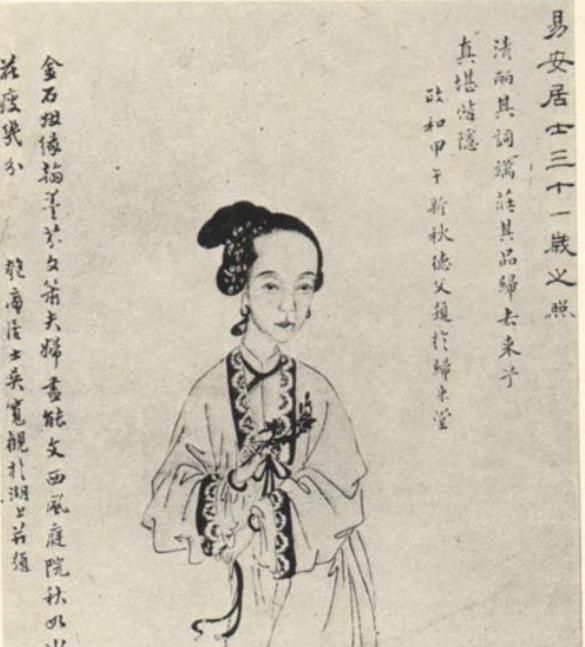 易安居士三十一歲之照
清丽其詞端莊其品歸去來兮
真堪偕隱
政和甲午新秋德父題於歸來堂
金石姻緣翰墨芬文簫夫婦盡能文西風庭院秋如水
花瘦幾分 匏庵居士吳寬觀於湖上并題